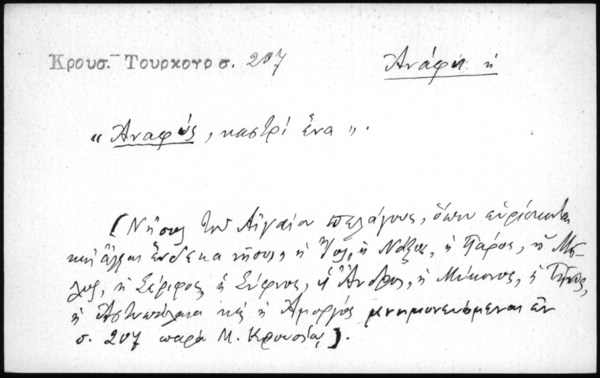 Κρουσ.- Τουρκογρ σ. 207 Ἀνάφη ἡ
« Ἀναφús, καστρί ἕνα ».
(Νῆσος τοῦ Αἰγαίου πελάγους, ὅπου εὑρίσκονται
καὶ ἄλλαι ἕνδεκα νῆσοι, ἡ Ἴος, ἡ Νάξος, ἡ Πάρος, ἡ Μῆ-
λος, ἡ Σέριφος, ἡ Σίφνος, ἡ Ἄνδρος, ἡ Μύκονος, ἡ Τῆνος,
ἡ Ἀστυπάλαια καὶ ἡ Ἀμοργός μνημονευόμεναι ἐν
σ. 207 παρὰ Μ. Κρουσίῳ).